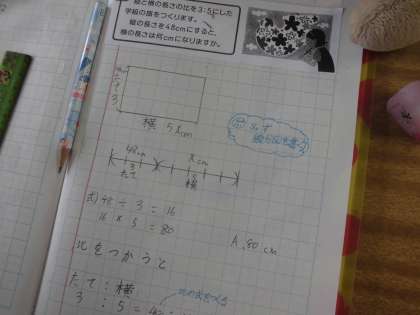 縦と横の長さの比を3:5にした
学級の旗をつくります。
縦の長さを48cmにすると、
横の長さは何cmになりますか。
たて 3
横 5 xcm
48cm
xcm
3
たて
5
横
式) 48 ÷ 3 = 16
16 × 5 = 80
A, 80 cm
比をつかうと
たて : 横
3 : 5 = 48 :
比の式をつくる